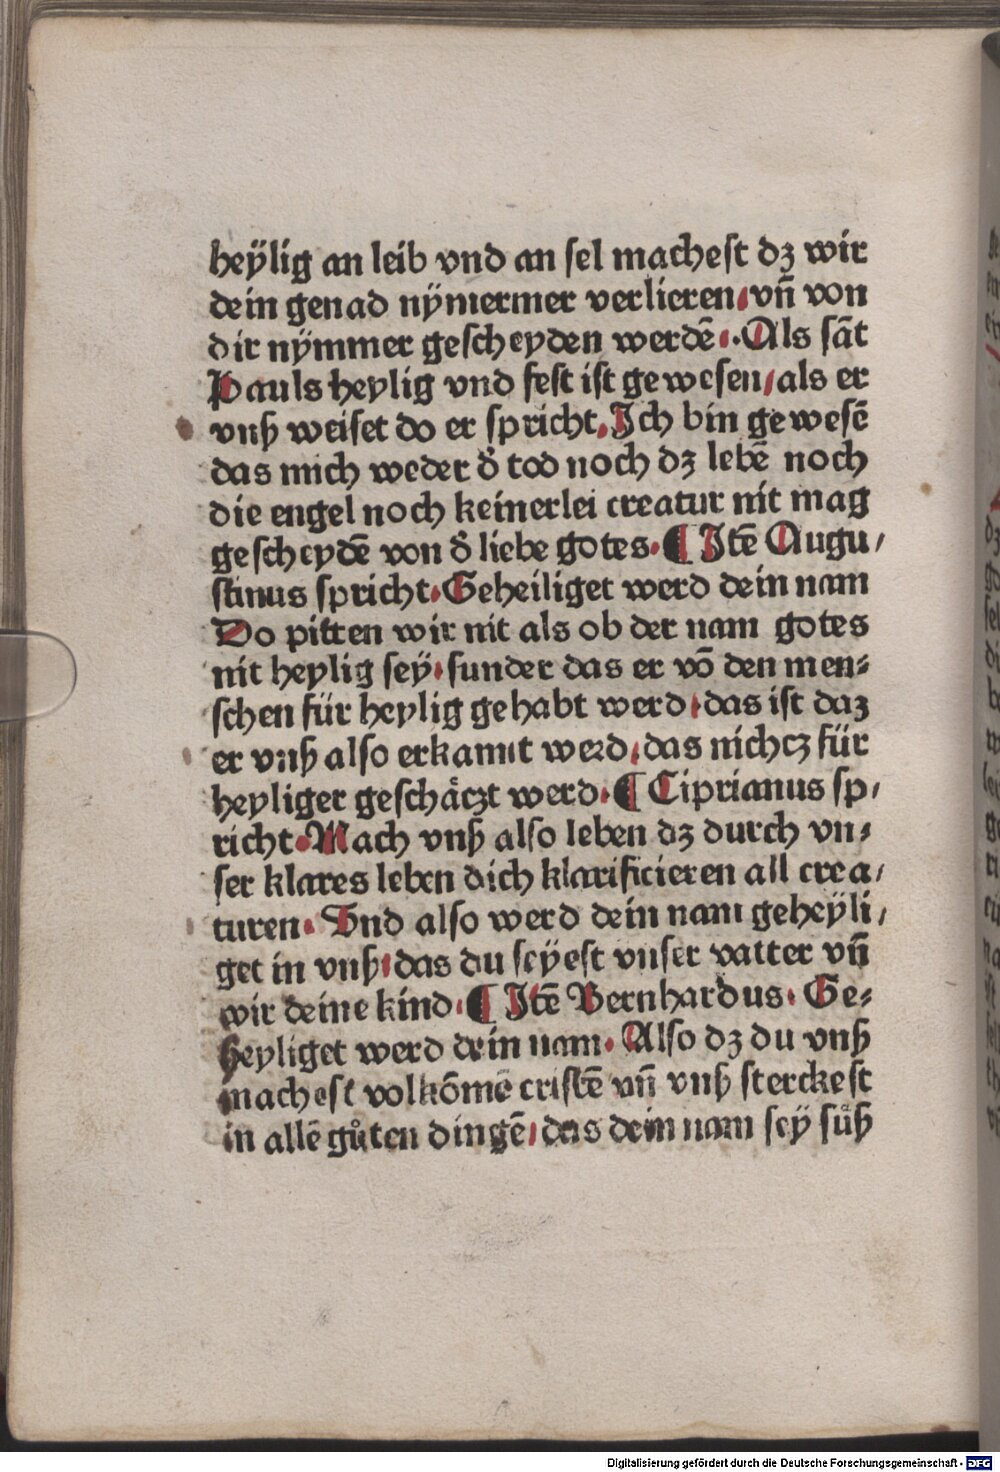 heÿlig an leib vnd an sel machest dz wir
dein genad nÿmermer verlieren/vn̄ von
dir nÿmmer gescheyden werdē.·Als sāt
Pauls heylig vnd fest ist gewesen/als er
vnß weiset do er spricht.Ich bin gewesē
das mich weder d̕ tod noch dz lebē noch
die engel noch keinerlei creatur nit mag
gescheydē von d̕ liebe gotes.¶ Itē Augu/
stinus spricht.Geheiliget werd dein nam
Do pitten wir nit als ob der nam gotes
nit heylig seÿ.sunder das er vō den men⸗
schen für heylig gehabt werd.das ist daz
er vnß also erkannt werd.das nichcz für
heyliger geschäczt werd.¶ Ciprianus sp/
richt.Mach vnß also leben dz durch vn⸗
ser klares leben dich klarificieren all crea/
turen. Vnd also werd dein nam geheÿli/
get in vnß.das du seÿest vnser vatter vn̄
wir deine kind.¶ Itē Bernhardus. Ge⸗
heyliget werd dein nam. Also dz du vnß
machest volkōmē cristē vn̄ vnß sterckest
in allē gůten dingē/das dein nam seÿ sůß
Digitalisierung gefördert durch die Deutsche Forschungsgemeinschaft - DFG